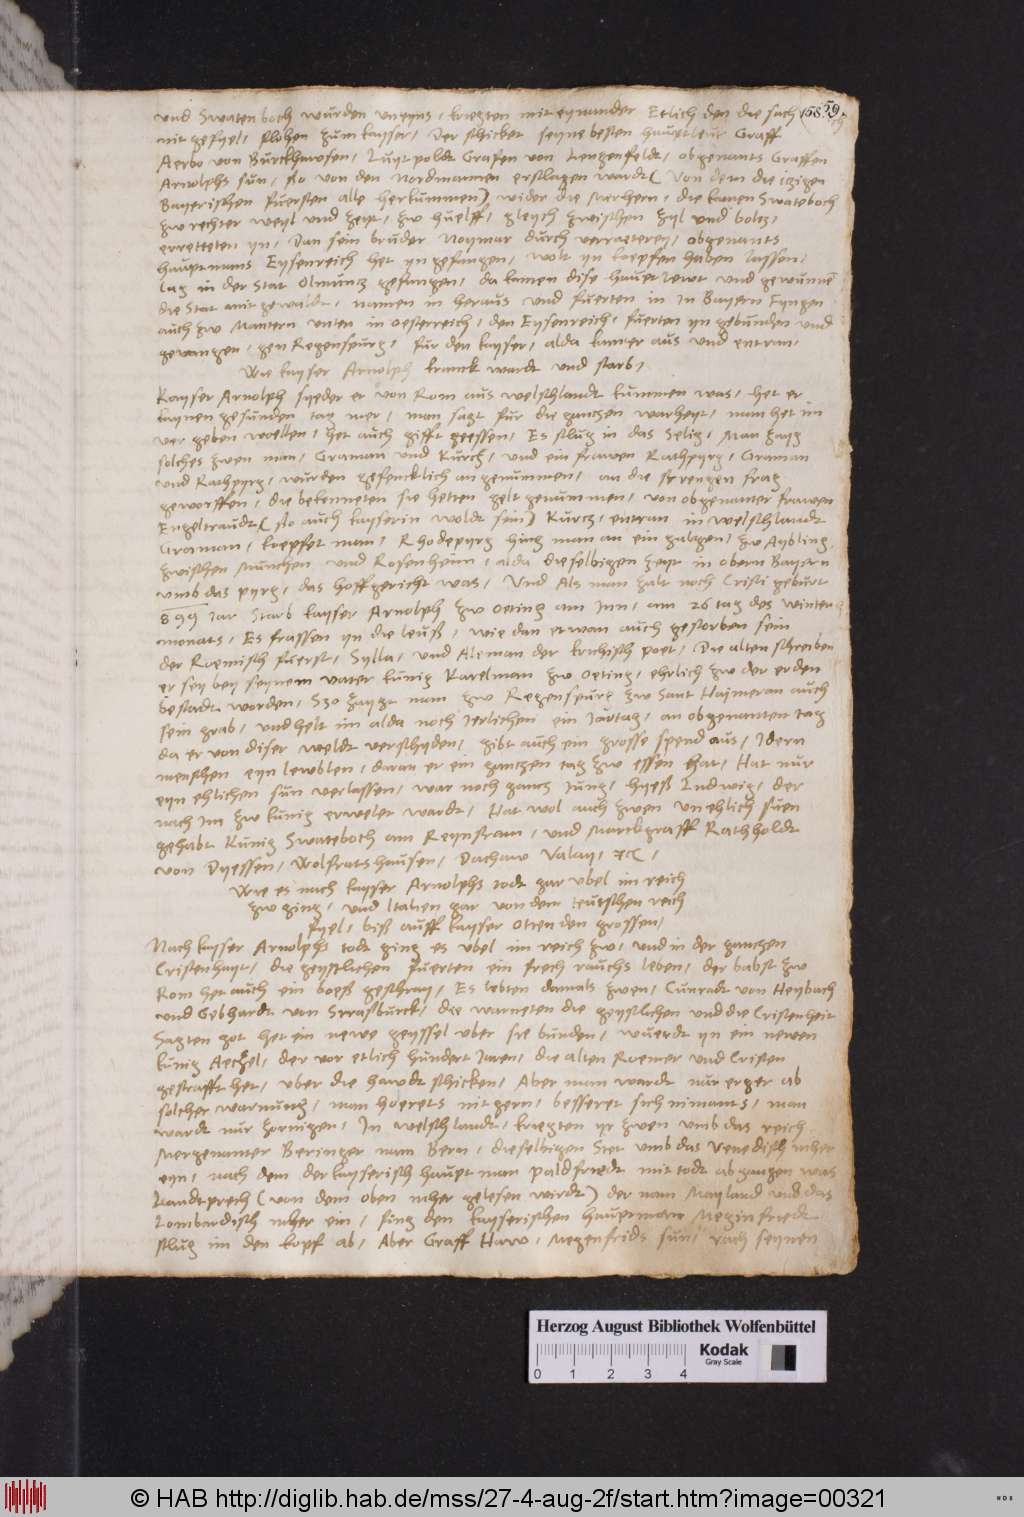 und Swatenboch wurden uneyns, kriegten mit eynander Etlich den die sach
nit gefyel, flohen zum kayser, Der schicket seyne besten hauptleut Graff
Aerbo von Burckhawsen, Luytpoldt Grafen von Lengenfeldt, obgenants Graffen
Arnolphs sun, so von den Nordmannen erslagen wardt (von dem die itzigen
Bayerischen fuersten alle herkummen) wider die Merhern, die kamen Swateboch
zw rechter weyl und zeyt, zw huelff, gleych zwischen zyl und boltz,
erretteten yn, Dan sein bruder Moymar durch verraeterey, obgenants
hauptmans Eysenreich het yn gefangen, wolt yn koepfen haben lassen,
lag in der Stat Olmuntz gefangen, da kamen dise hauetlewt und gewunnen
die Stat mit gewaldt, namen in heraus und fuerten in in Bayern Fyngen
auch zw Mautern unten in oesterreich, den Eysenreich, fuerten yn gebunden und
gevangen, gen Regenspurg, fur den kayser, alda kamer aus und entran,
Wie kayser Arnolph kranck wardt und starb,
Kayser Arnolph syeder er von Rom aus welschlandt kummen was, het er
kaynen gesunden tag mer, man sagt fur die gantzen warheyt, man het im
vergeben woellen, het auch gifft geessen, Es slug in das Selig, Man zayg
solches zwen man, Graman und Kurch, und ein frawen Rathpyrg, Graman
und Rathpyrg, wurden gefencklich angenummen, an die strengen frag
geworffen, die bekenneten sie hetten gelt genummen, von obgenanter frawen
Engeltraudt (so auch kayserin woldt sein) Kurcz, entran in welschlandt
Graman, koepfet man, Rhodepyrg hing man an ein galgen, zw Aybling,
zwischen Munchen und Rosenheim, alda dieselbigen zeyt in obern Bayern
umb das pyrg, das hoffgericht was, Und Als man zalt noch Cristi geburt
899 Jar Starb kayser Arnolph zw oeting am Inn, am 26 tag des winter
monats, Es frassen yn die leuß, wie dan etwan auch gestorben sein
der Roemisch fuerst, Sylla, und Aleman der krichisch poet, Die alten schreiben
er sey bey seynem vater kunig Karelman zw oeting, ehrlich zw der erden
bestadt worden, So zaygt man zw Regenspurg zw Sant Haimeran auch
sein grab, und helt im alda noch Jerlichen ein Jartag, an obgenanten tag
da er von diser weldt verschyden, gibt auch ein grosse spend aus, Idern
menschen eyn lewblen, daran er ein gantzen tag zw essen hat, Hat nur
eyn ehlichen sun verlassen, war noch gantz Jung, hyeß Ludwig, der
nach im zw kunig erwelet wardt, Hat wol auch zwen unehlich suen
gehabt Kunig Swateboch am Reynstram, und Marckgraff Rathholdt
von Dyessen, Wolfratshausen, Dachaw Valay, etc,
Wie es nach kayser Arnolphs todt gar ubel im reich
zw ging, und Italien gar von dem teutschen reich
fyel, biß auff kayser Otten den grossen,
Nach kayser Arnolphs todt ging es ubel im reich zw, und in der gantzen
Cristenhayt, die geystlichen fuerten ein frech rauchs leben, der babst zw
Rom het auch ein boeß geschray, Es lebten damals zwen, Cunradt von Heybach
und Gebhardt von Strasburck, die warneten die geystlichen und die Cristenheit
Sagten got het ein newe geyssel uber sie bunden, wuerdt yn ein newen
kunig Aeczel, der vor etlich hundert Jaren, die alten Roemer und Cristen
gestrafft het, uber die hawdt schicken, Aber man wardt nur erger ab
solcher warnung, man hoerets nit gern, besseret sich nimants, man
wardt nur zornigen, In welschlandt, kriegten yr zwen umb das reich
Mergenanter Beringer nam Bern, dieselbigen Stet umb das Venedisch mher
eyn, nach dem der kayserisch hauptman Paldfriedt mit todt abgangen was
Landtprech (von dem oben mher gelesen wirdt) der nam Mayland und das
Lombardisch mher ein, fing den kayserischen haupman Meginfriedt
slug im den kopf ab, Aber Graff Haw, Megenfrids sun, rach seynen
Herzog August Bibliothek Wolfenbüttel
Kodak
Gray Scale
0 1 2 3 4
© HAB http://diglib.hab.de/mss/27-4-aug-2f/start.htm?image=00321